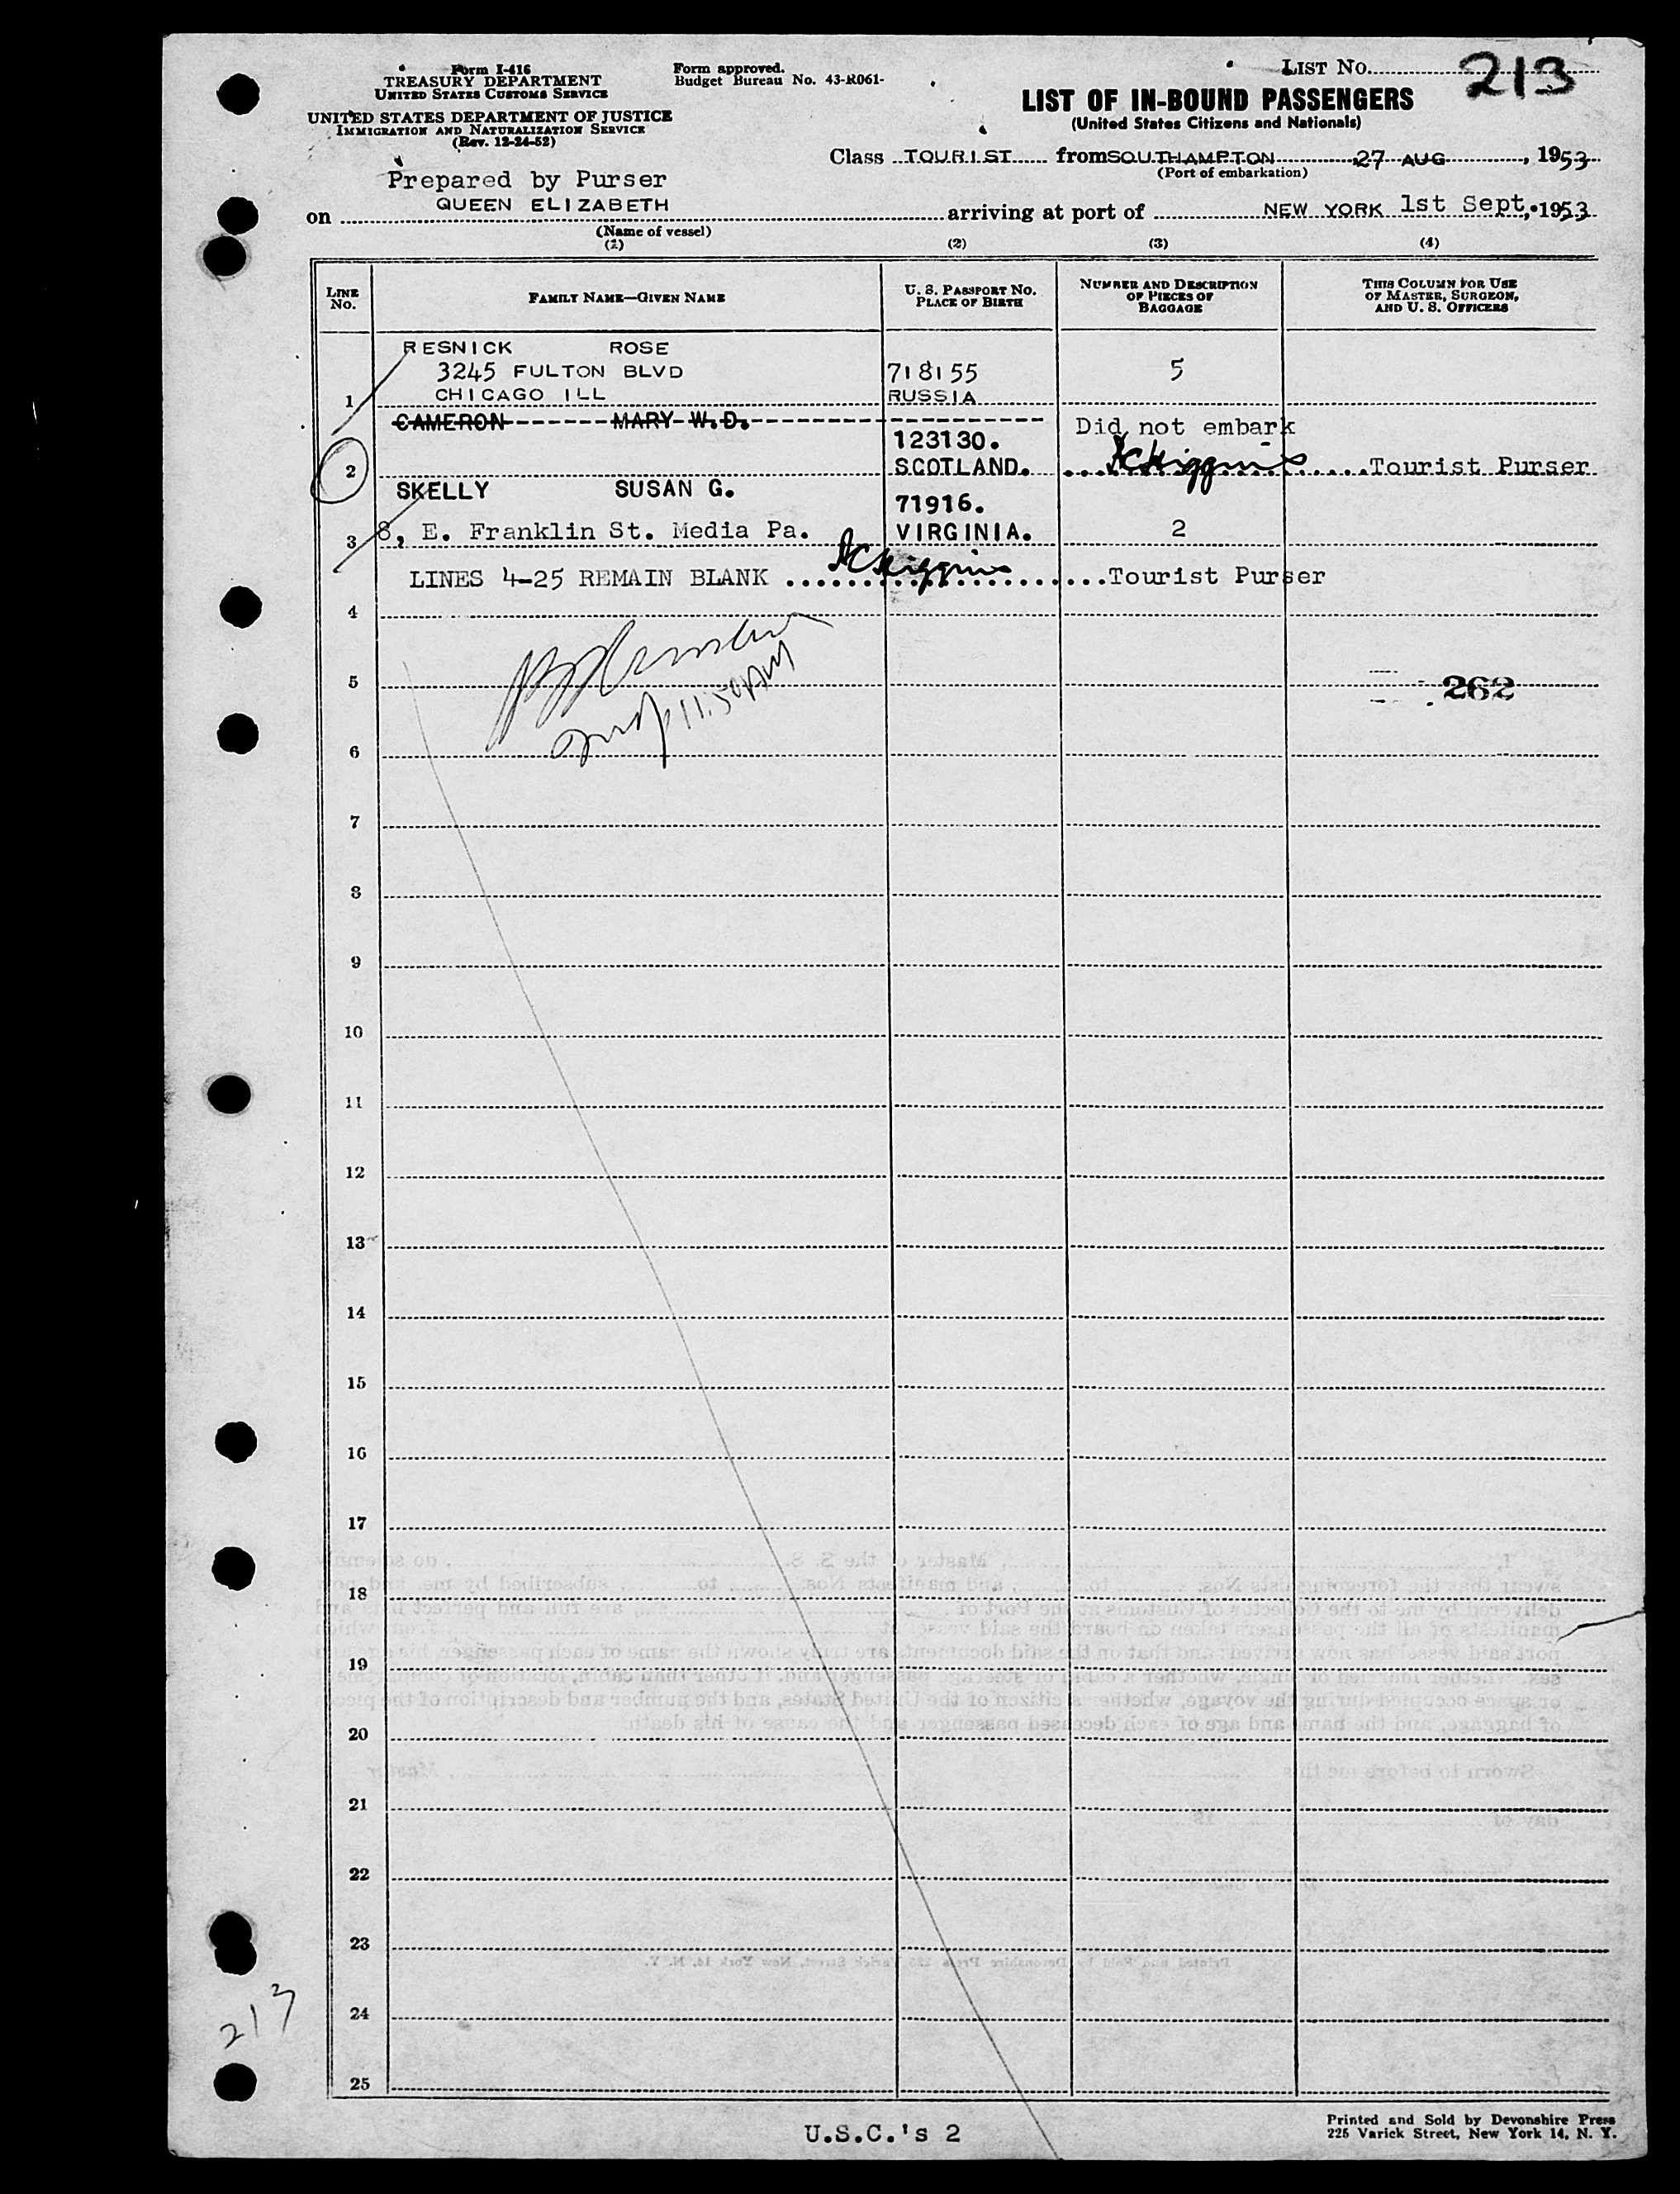 Form I-416
TREASURY DEPARTMENT
UNITED STATES CUSTOMS SERVICE
UNITED STATES DEPARTMENT OF JUSTICE
IMMIGRATION AND NATURALIZATION SERVICE
(Rev. 12-24-52)
Form approved.
Budget Bureau No. 43-R061-
LIST NO. 213
LIST OF IN-BOUND PASSENGERS
(United States Citizens and Nationals)
Class TOURIST from SOUTHAMPTON 27 AUG, 1953
(Port of embarkation)
Prepared by Purser
on QUEEN ELIZABETH arriving at port of NEW YORK 1st Sept, 1953
(Name of vessel)
(1) (2) (3) (4)
LINE No. FAMILY NAME—GIVEN NAME U. S. PASSPORT NO. PLACE OF BIRTH NUMBER AND DESCRIPTION OF PIECES OF BAGGAGE THIS COLUMN FOR USE OF MASTER, SURGEON, AND U. S. OFFICERS
RESNICK ROSE
3245 FULTON BLVD 718155 5
1 CHICAGO ILL RUSSIA
CAMERON MARY W.D. Did not embark
123130.
2 SCOTLAND. Higgins Tourist Purser
SKELLY SUSAN G.
71916.
3 8, E. Franklin St. Media Pa. VIRGINIA. 2
LINES 4-25 REMAIN BLANK Higgins Tourist Purser
4
5 262
11:50AM
6
7
8
9
10
11
12
13
14
15
16
17
18
19
20
21
22
23
24
213
25
U.S.C.'s 2
Printed and Sold by Devonshire Press
225 Varick Street, New York 14, N. Y.